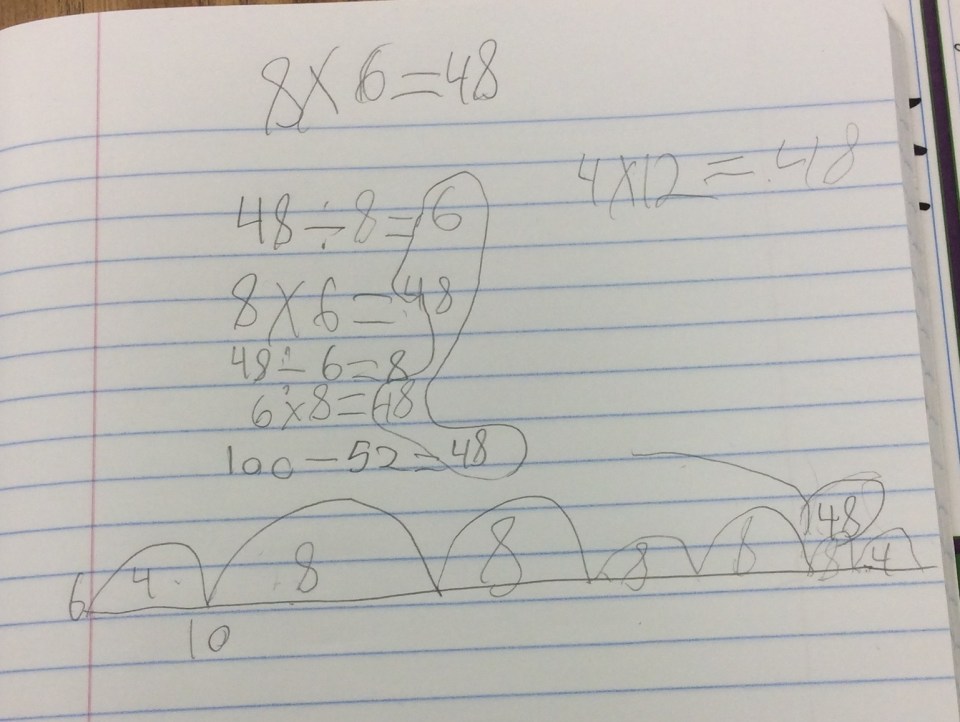 8 × 6 = 48
4 × 12 = 48
48 ÷ 8 = 6
8 × 6 = 48
48 ÷ 6 = 8
6 × 8 = 48
100 - 52 = 48
48
6 4 8 8 8 8 8 4
10